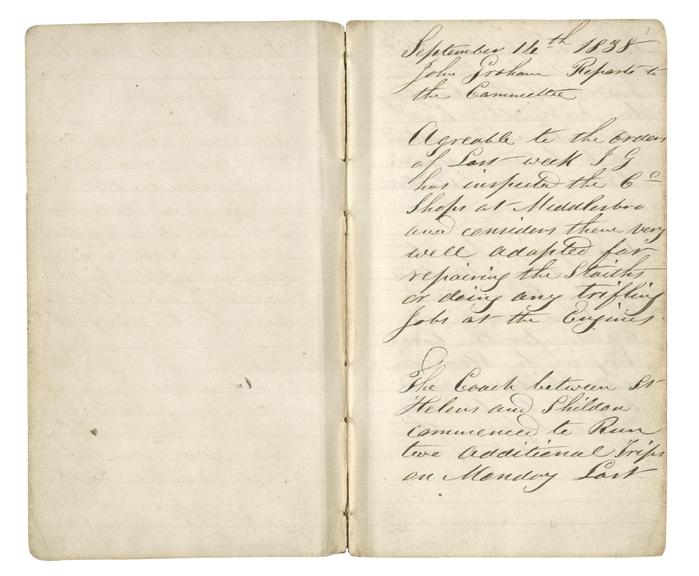 September 14th 1838
John Graham Reports to
the Committee
Agreable to the orders
of Last week J G
has inspected the Co
Shops at Middlesbro
and considers them very
well adapted for
repairing the Staiths
or doing any trifling
Jobs at the Engines
The Coach between St
Helens and Shildon
commenced to Run
two additional Trips
on Monday Last